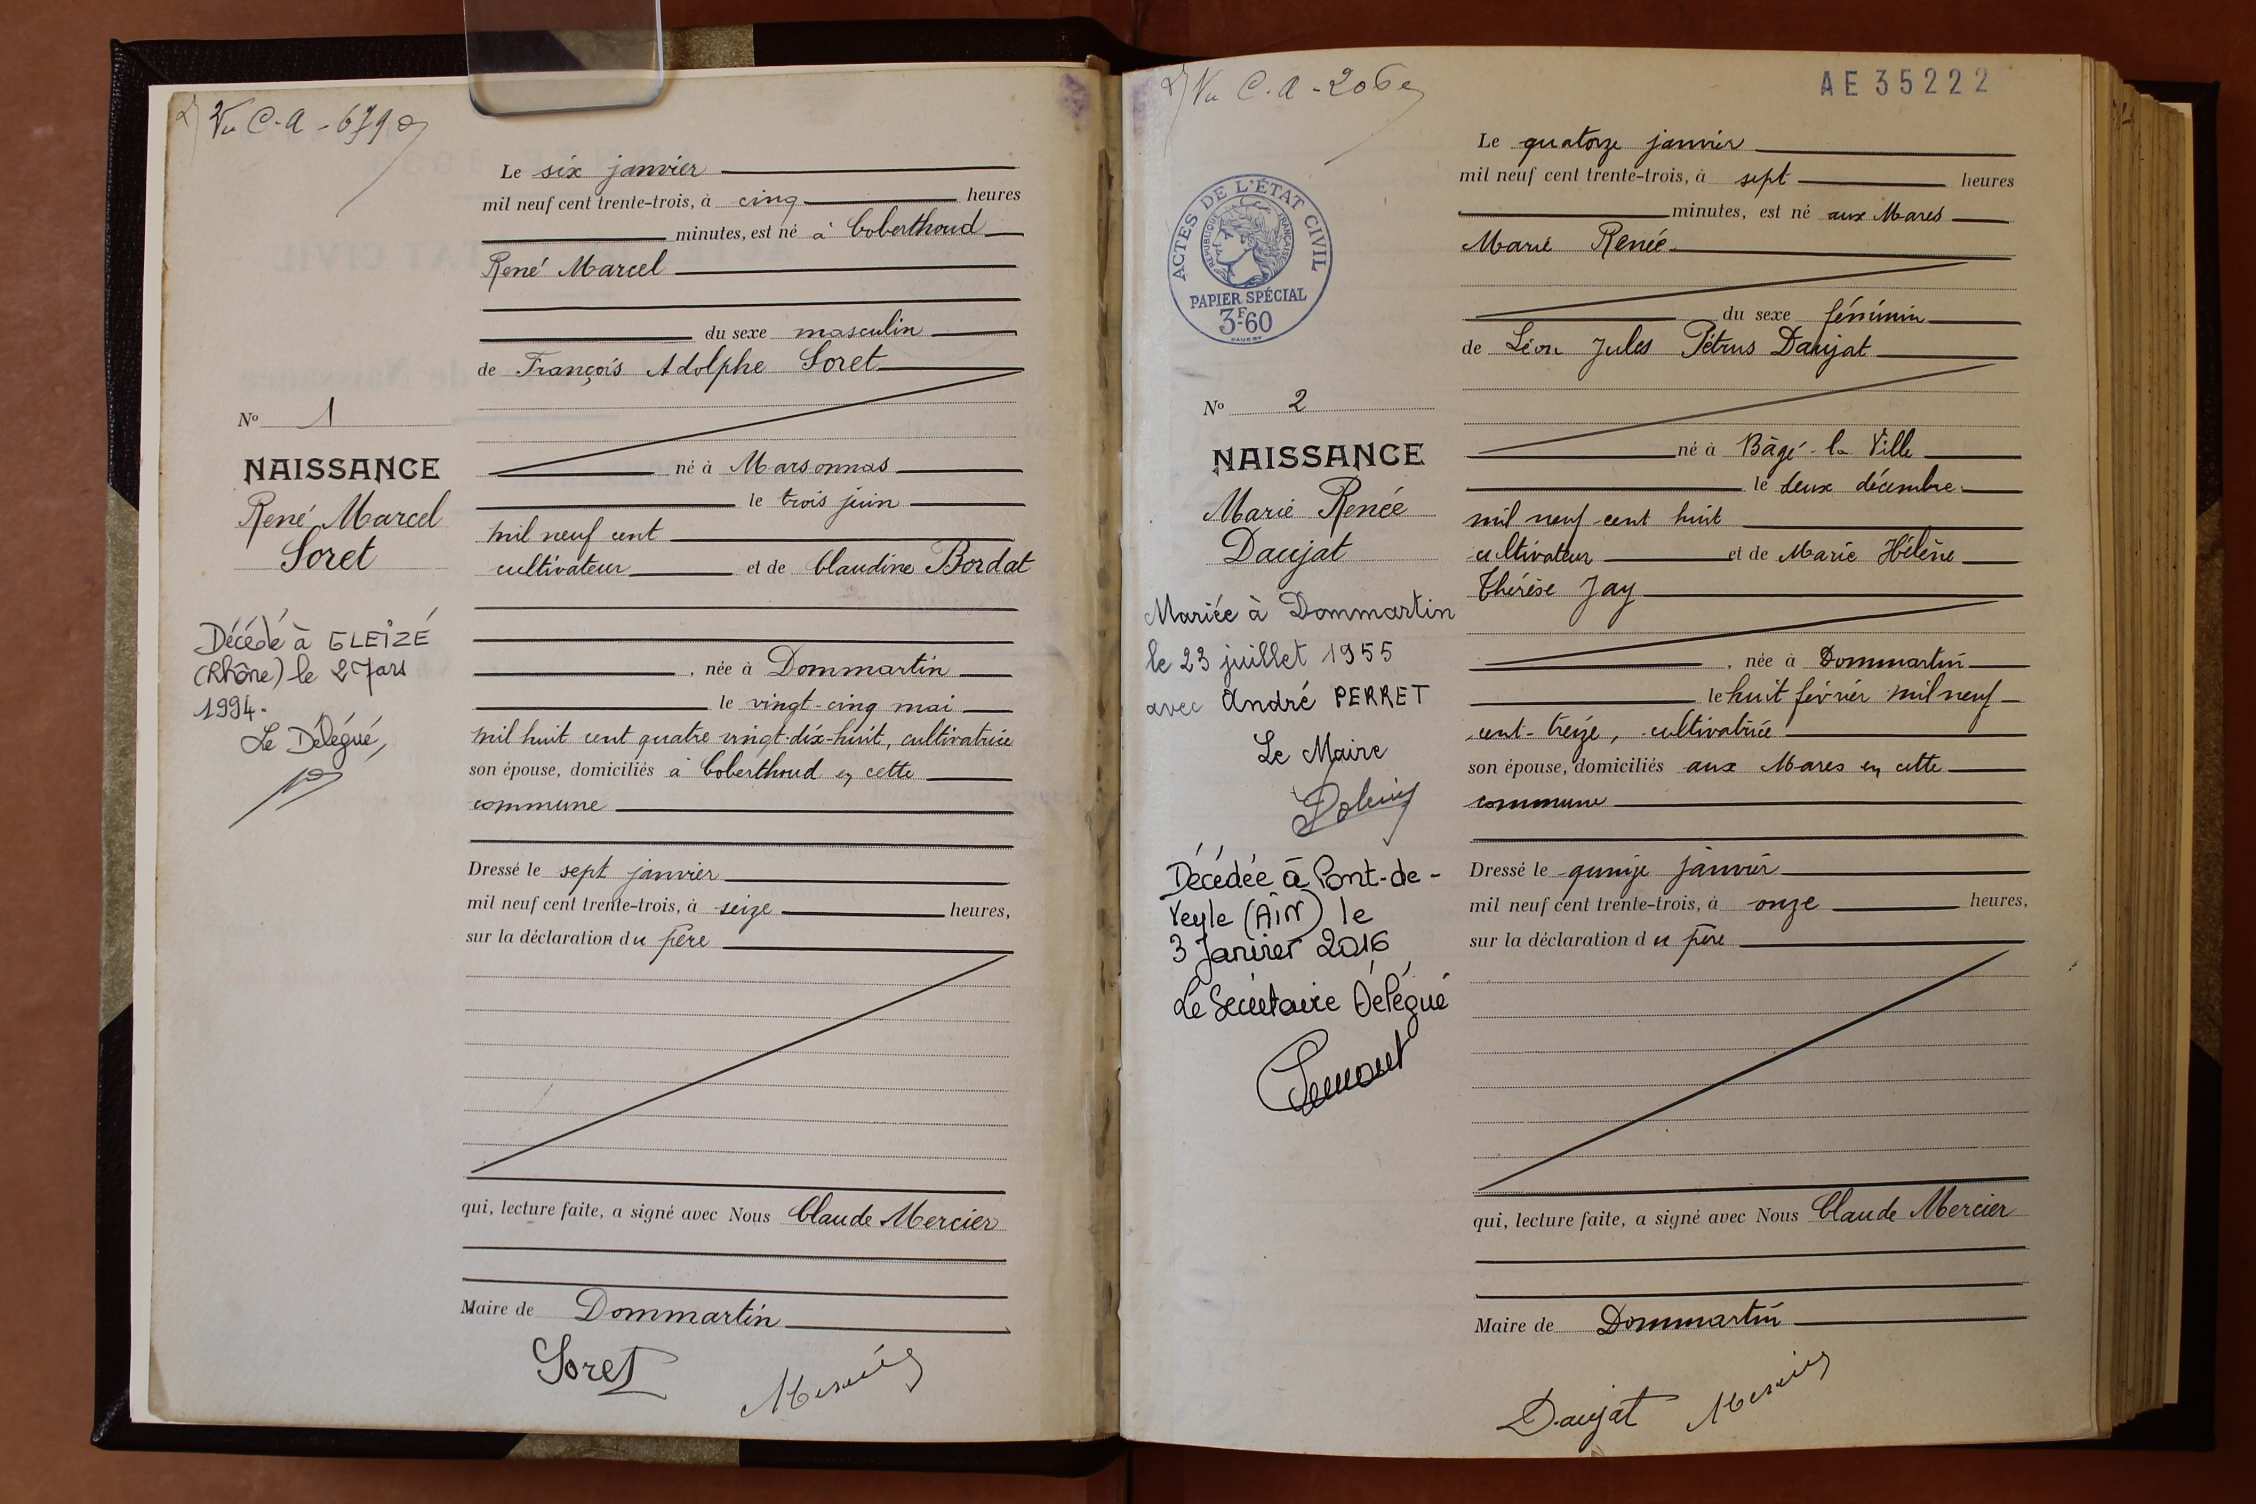 Vu C.A - 679
Le six janvier
mil neuf cent trente-trois, à cinq heures
minutes, est né à Coberthoud
René Marcel
du sexe masculin
de François Adolphe Soret
né à Marsonnas
le trois juin
mil neuf cent
cultivateur et de Claudine Bordat
, née à Dommartin
le vingt-cinq mai
mil huit cent quatre vingt-dix-huit, cultivatrice
son épouse, domiciliés à Coberthoud en cette
commune
Dressé le sept janvier
mil neuf cent trente-trois, à seize heures,
sur la déclaration du père
qui, lecture faite, a signé avec Nous Claude Mercier
Maire de Dommartin
Soret Mercier
No 1
NAISSANCE
René Marcel
Soret
Décédé à GLEIZÉ
(Rhône) le 2 Mars
1994.
Le Délégué,
Vu C.A - 206
AE 35222
ACTES DE L'ÉTAT CIVIL
RÉPUBLIQUE FRANÇAISE
PAPIER SPÉCIAL
3F60
Le quatorze janvier
mil neuf cent trente-trois, à sept heures
minutes, est né aux Mares
Marie Renée
du sexe féminin
de Léon Jules Pétrus Daujat
né à Bâgé-la Ville
le deux décembre
mil neuf cent huit
cultivateur et de Marie Hélène
Thérèse Jay
, née à Dommartin
le huit février mil neuf
cent-treize, cultivatrice
son épouse, domiciliés aux Mares en cette
commune
Dressé le quinze janvier
mil neuf cent trente-trois, à onze heures,
sur la déclaration du père
qui, lecture faite, a signé avec Nous Claude Mercier
Maire de Dommartin
Daujat Mercier
No 2
NAISSANCE
Marie Renée
Daujat
Mariée à Dommartin
le 23 juillet 1955
avec André PERRET
Le Maire
Décédée à Pont-de-
Veyle (AIN) le
3 Janvier 2016
Le Secrétaire Délégué